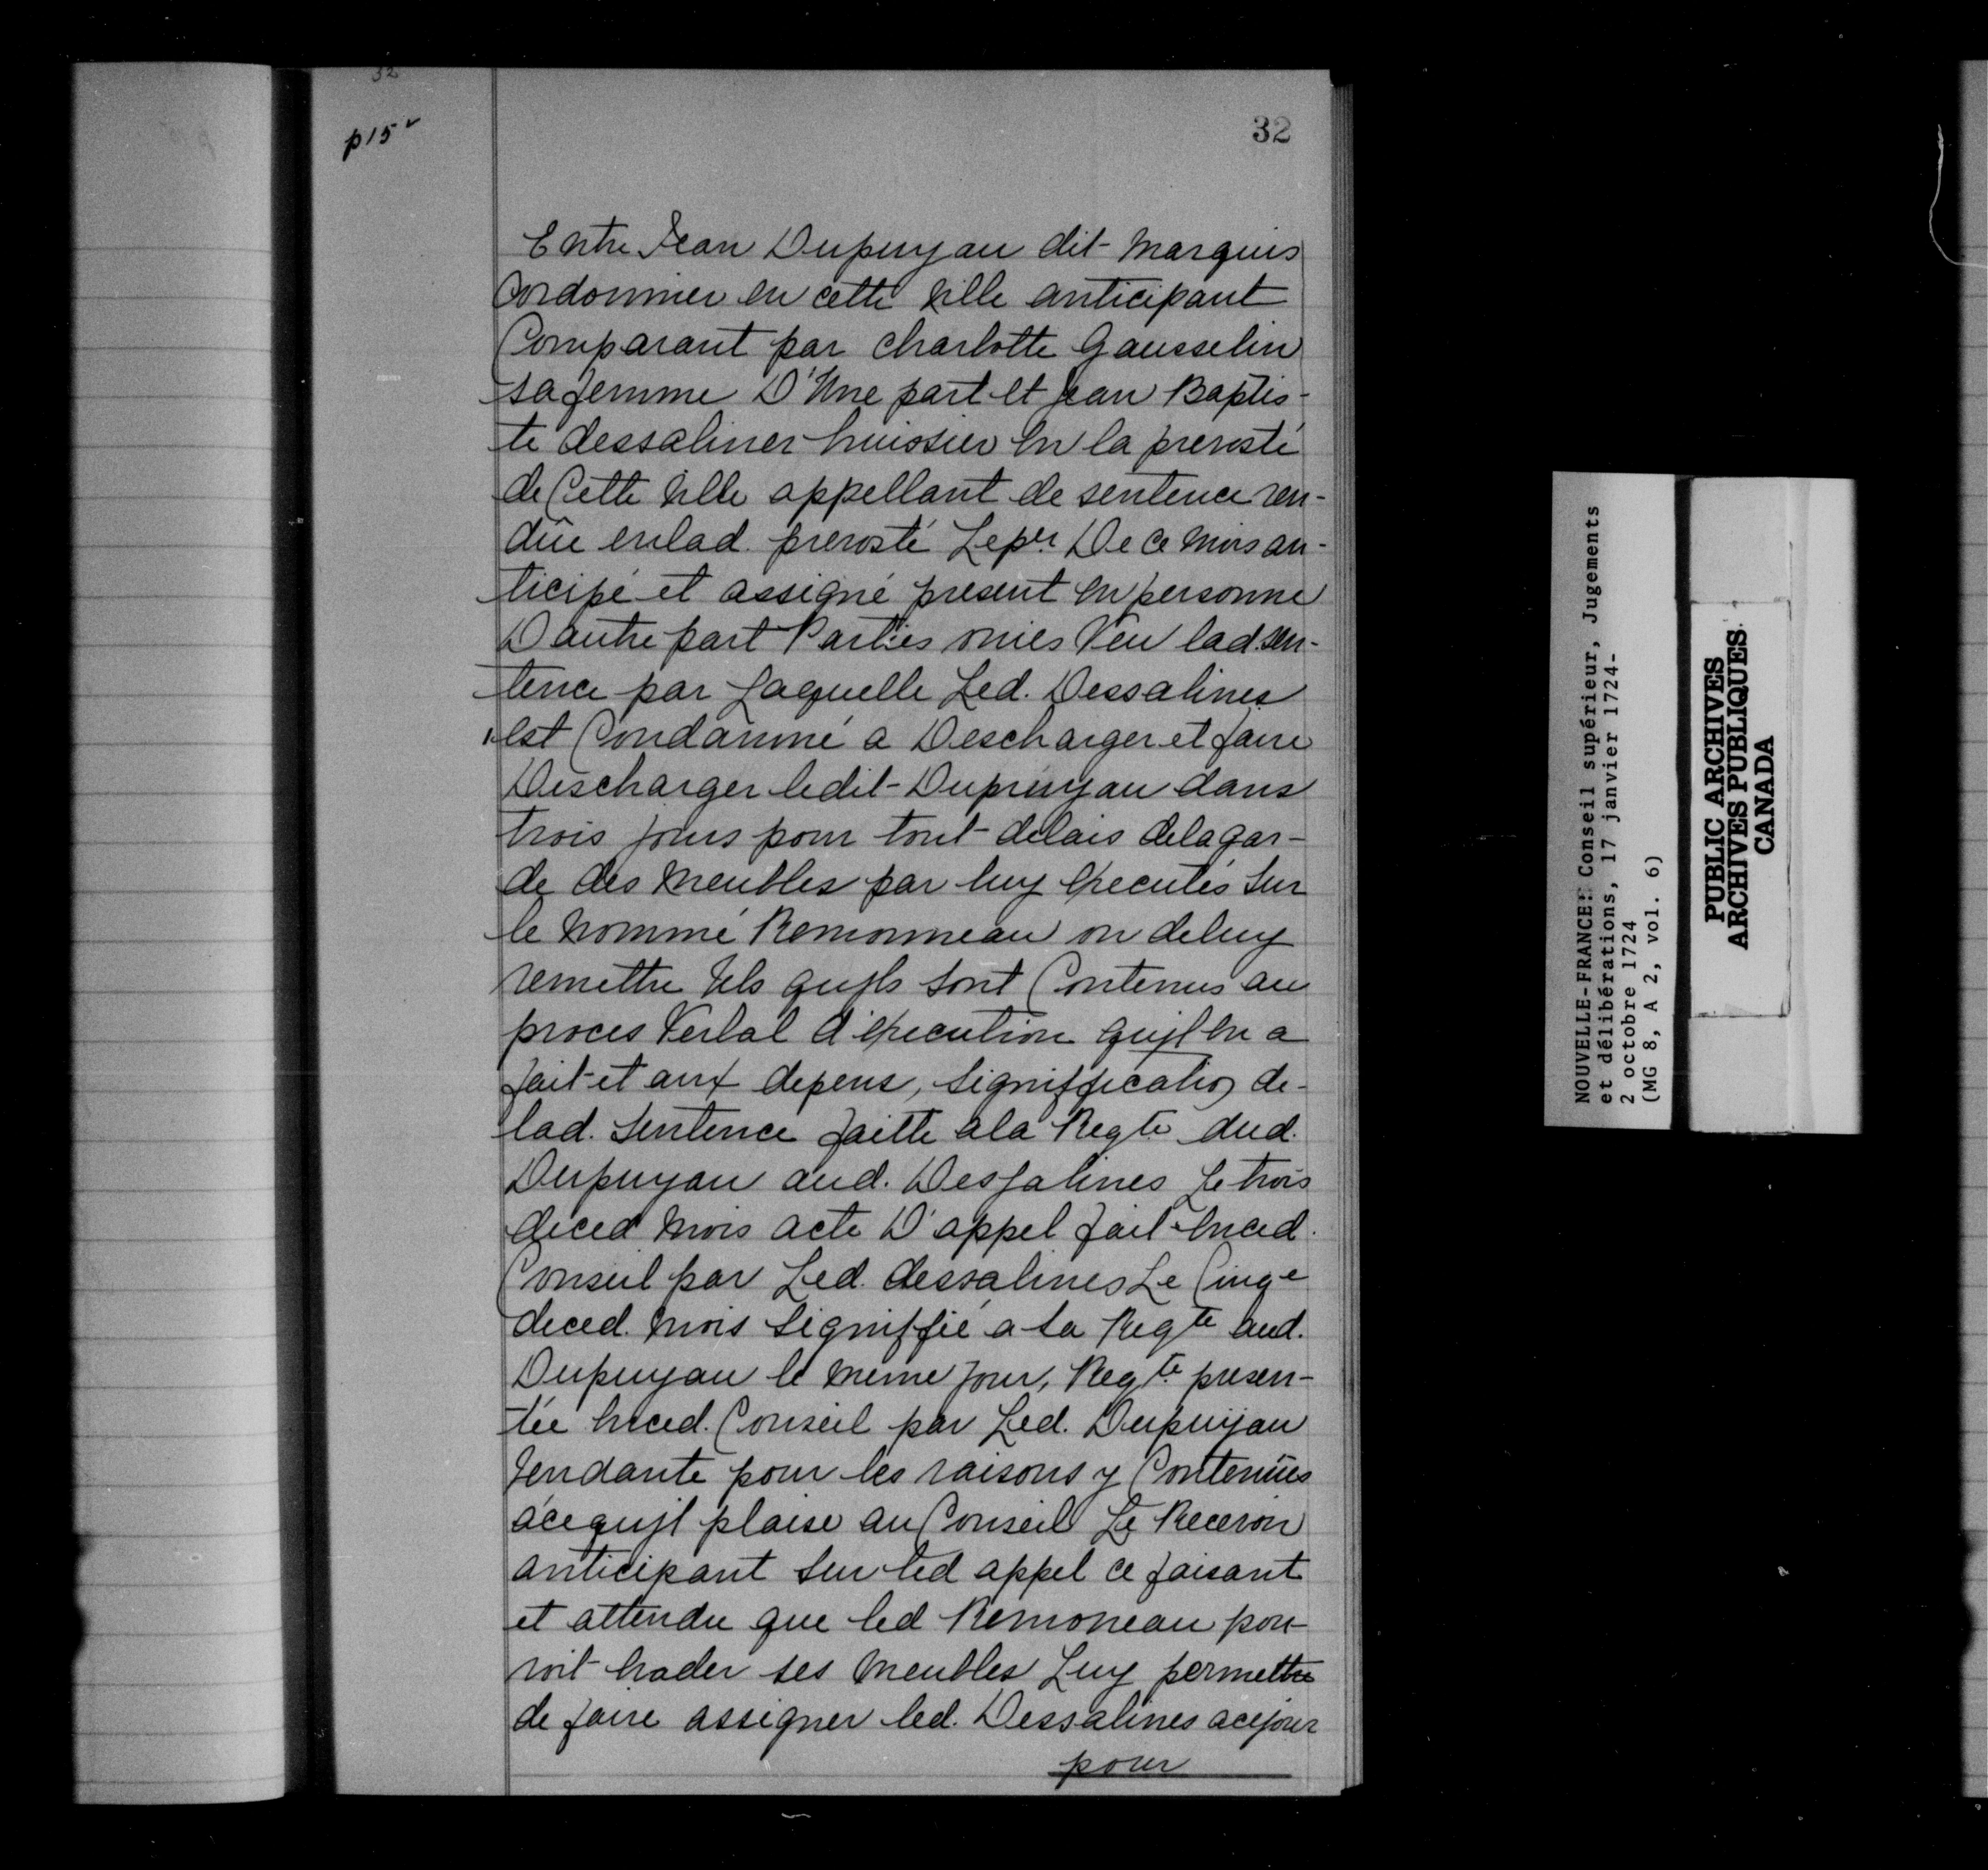 32
p 15 v
32
Entre Jean Dupuyau dit Marquis
Cordonnier en cette ville anticipant
Comparant par Charlotte Gausselin
sa femme D'Une part et Jean Baptis-
te dessalines huissier en la prevosté
de Cette ville appellant de sentence ren-
düe enlad. prevosté Le pr. De ce mois an-
ticipé et assigné present en personne
D autre part Parties ouies Veu lad. sen-
tence par Laquelle Led. Dessalines
est Condamné a Descharger et faire
Descharger ledit Dupuyau dans
trois jours pour tout delais dela gar-
de des meubles par luy executés sur
le nommé Remonneau ou deluy
remettre tels qujls sont Contenus au
proces Verbal d'execution qujl en a
fait et aux depens, signiffication de-
lad. Sentence faitte ala Reqte dud.
Dupuyau aud. Dessalines Le trois
deced mois acte D'appel fait enced.
Conseil par Led. dessalines Le Cinqe
deced. mois signiffié a sa Reqte aud.
Dupuyau le meme jour, Reqte presen-
tée enced. Conseil par Led. Dupuyau
tendante pour les raisons y Contenües
acequjl plaise au Conseil Le Recevoir
anticipant sur led appel ce faisant
et attendu que led Remoneau pou-
roit evader ses meubles Luy permettre
de faire assigner led. Dessalines acejour
pour
NOUVELLE-FRANCE: Conseil supérieur, Jugements
et délibérations, 17 janvier 1724-
2 octobre 1724
(MG 8, A 2, vol. 6)
PUBLIC ARCHIVES
ARCHIVES PUBLIQUES
CANADA